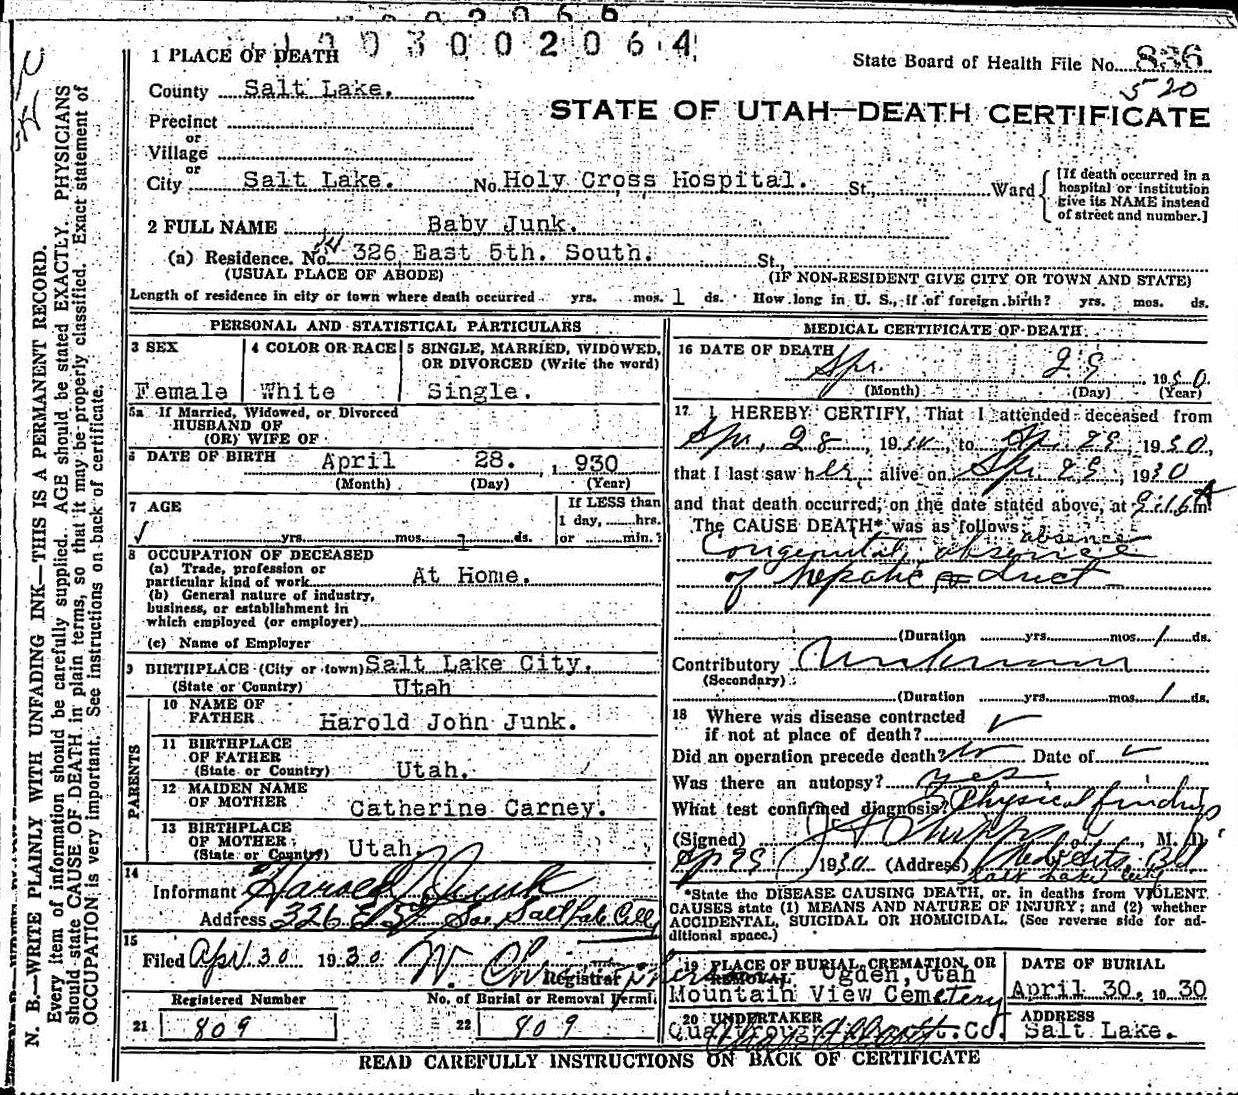 1003002064
1 PLACE OF DEATH
State Board of Health File No. 836
County Salt Lake.
520
STATE OF UTAH—DEATH CERTIFICATE
Precinct
or
Village
or
City Salt Lake. No. Holy Cross Hospital. St., Ward
[If death occurred in a hospital or institution give its NAME instead of street and number.]
2 FULL NAME Baby Junk.
(a) Residence. No. 326 East 5th. South. St.,
(USUAL PLACE OF ABODE) (IF NON-RESIDENT GIVE CITY OR TOWN AND STATE)
Length of residence in city or town where death occurred yrs. mos. 1 ds. How long in U. S., if of foreign birth? yrs. mos. ds.
PERSONAL AND STATISTICAL PARTICULARS
3 SEX 4 COLOR OR RACE 5 SINGLE, MARRIED, WIDOWED, OR DIVORCED (Write the word)
Female White Single.
5a If Married, Widowed, or Divorced
HUSBAND OF
(OR) WIFE OF
6 DATE OF BIRTH April 28. , 1930
(Month) (Day) (Year)
7 AGE If LESS than
1 day, hrs.
yrs. mos. 1 ds. or min.?
8 OCCUPATION OF DECEASED
(a) Trade, profession or
particular kind of work At Home.
(b) General nature of industry,
business, or establishment in
which employed (or employer)
(c) Name of Employer
9 BIRTHPLACE (City or town) Salt Lake City.
(State or Country) Utah
PARENTS
10 NAME OF
FATHER Harold John Junk.
11 BIRTHPLACE
OF FATHER
(State or Country) Utah.
12 MAIDEN NAME
OF MOTHER Catherine Carney.
13 BIRTHPLACE
OF MOTHER
(State or Country) Utah
14
Informant Harold J Junk
Address 326 E 5 So Salt Lake City
15
Filed Apr 30 1930 Registrar
Registered Number No. of Burial or Removal Permit
21 809 22 809
MEDICAL CERTIFICATE OF DEATH
16 DATE OF DEATH
Apr. 29, 1930.
(Month) (Day) (Year)
17 I HEREBY CERTIFY, That I attended deceased from
Apr, 28, 1930, to Apr. 29, 1930,
that I last saw her alive on Apr 29, 1930
and that death occurred, on the date stated above, at 9:16 A m
The CAUSE DEATH* was as follows:
absence
Congenital absence
of hepatic duct
(Duration yrs. mos. 1 ds.
Contributory Unknown
(Secondary)
(Duration yrs. mos. 1 ds.
18 Where was disease contracted
if not at place of death?
Did an operation precede death? No Date of
Was there an autopsy? yes
What test confirmed diagnosis? Physical findings
(Signed) M. D.
Ap 29 1930 (Address) Med. Arts Bld
Salt Lake City
*State the DISEASE CAUSING DEATH, or, in deaths from VIOLENT
CAUSES state (1) MEANS AND NATURE OF INJURY; and (2) whether
ACCIDENTAL, SUICIDAL OR HOMICIDAL. (See reverse side for ad-
ditional space.)
19 PLACE OF BURIAL, CREMATION, OR REMOVAL DATE OF BURIAL
Ogden, Utah
Mountain View Cemetery April 30, 1930
20 UNDERTAKER ADDRESS
Co. Salt Lake.
READ CAREFULLY INSTRUCTIONS ON BACK OF CERTIFICATE
N. B.—WRITE PLAINLY WITH UNFADING INK—THIS IS A PERMANENT RECORD.
Every item of information should be carefully supplied. AGE should be stated EXACTLY. PHYSICIANS
should state CAUSE OF DEATH in plain terms, so that it may be properly classified. Exact statement of
OCCUPATION is very important. See instructions on back of certificate.